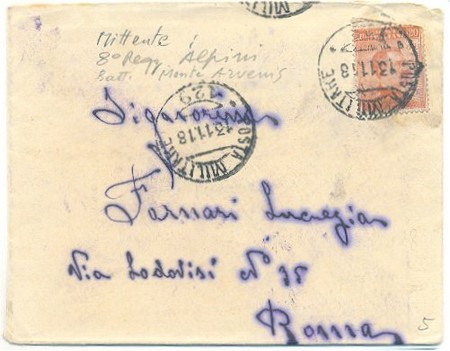 Mittente
8º Regg. Alpini
Batt. Monte Arvenis
POSTA MILITARE
13.11.18
129
POSTA MILITARE
13.11.18
Signorina
Fornari Lucrezia
Via Lodovisi Nº 35
Roma
5